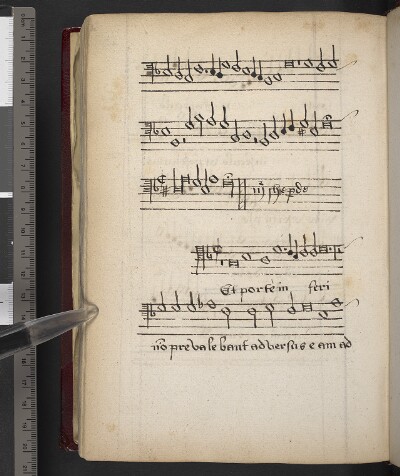 Et porte in feri
no prevalebant adversus eam ad